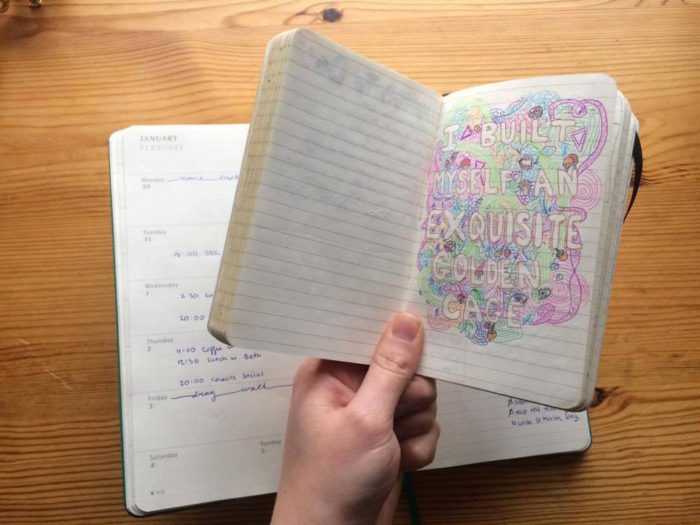 I BUILT
MYSELF AN
EXQUISITE
GOLDEN
CAGE
JANUARY
FEBRUARY
Monday
30
Tuesday
31
18:00 SSC
Wednesday
1
2:30
20:00
Thursday
2
11:00 Coffee
12:30 Lunch w Beth
20:00 socials social
Friday
3
drag walk
Saturday
4
Sunday
5